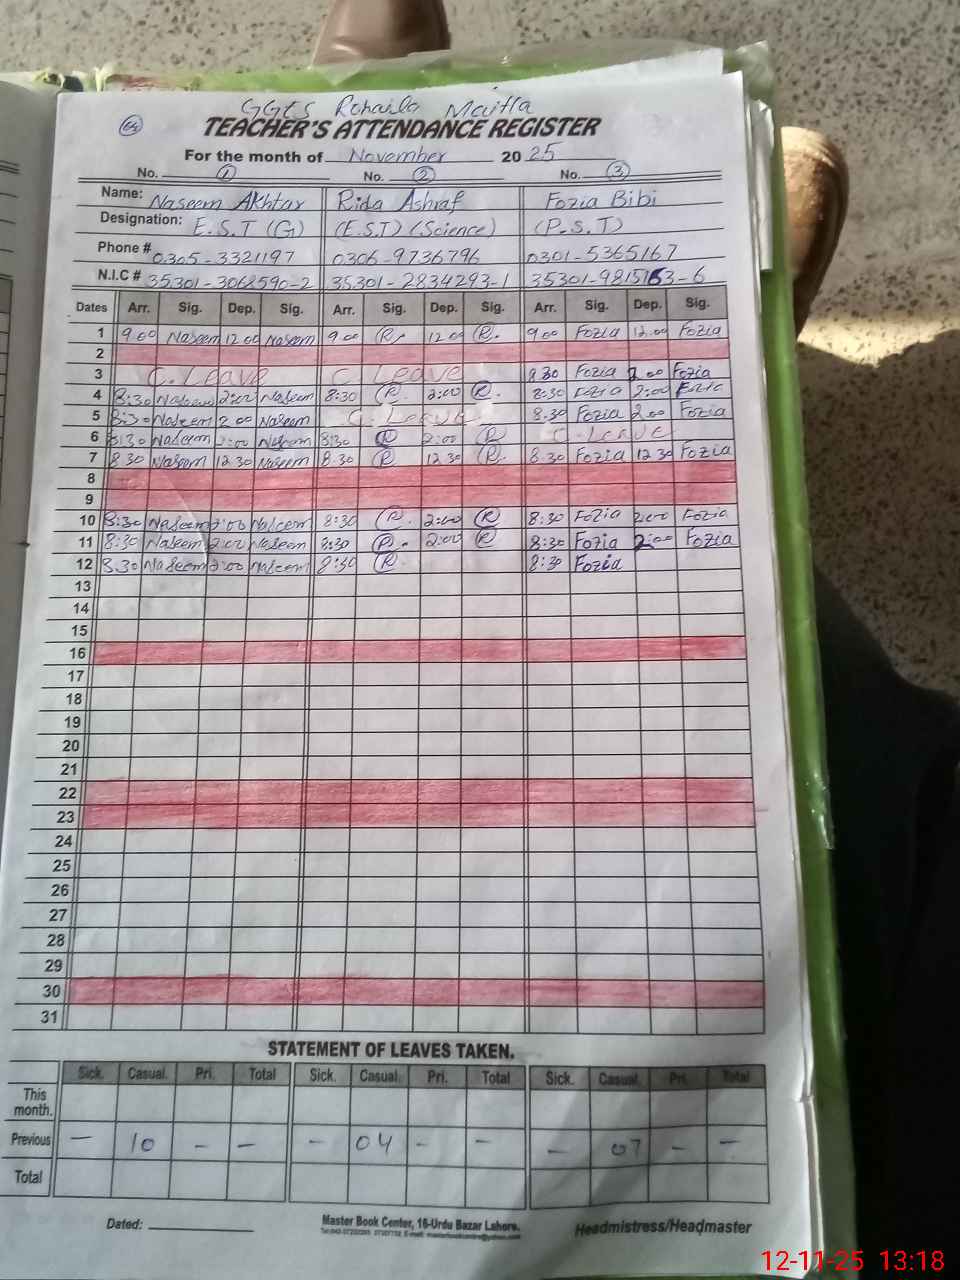 GGES Rohaila Maitla
64
TEACHER'S ATTENDANCE REGISTER
For the month of November 20 25
No. 1 No. 2 No. 3
Name: Naseem Akhtar Rida Ashraf Fozia Bibi
Designation: E.S.T (G) (E.S.T) (Science) (P.S.T)
Phone # 0305-3321197 0306-9736796 0301-5365167
N.I.C # 35301-3068590-2 35301-2834293-1 35301-9815163-6
Dates Arr. Sig. Dep. Sig. Arr. Sig. Dep. Sig. Arr. Sig. Dep. Sig.
1 9:00 Naseem 12:00 Naseem 9:00 R. 12:00 R. 9:00 Fozia 12:00 Fozia
2
3 C. Leave C Leave 8:30 Fozia 2:00 Fozia
4 8:30 Naseem 2:00 Naseem 8:30 R 2:00 R. 8:30 Fozia 2:00 Fozia
5 8:30 Naseem 2:00 Naseem C. Leave 8:30 Fozia 2:00 Fozia
6 8:30 Naseem 2:00 Naseem 8:30 R 2:00 R C. Leave
7 8:30 Naseem 12:30 Naseem 8:30 R. 12:30 R. 8:30 Fozia 12:30 Fozia
8
9
10 8:30 Naseem 2:00 Naseem 8:30 R. 2:00 R 8:30 Fozia 2:00 Fozia
11 8:30 Naseem 2:00 Naseem 8:30 R. 2:00 R 8:30 Fozia 2:00 Fozia
12 8:30 Naseem 2:00 Naseem 8:30 R 8:30 Fozia
13
14
15
16
17
18
19
20
21
22
23
24
25
26
27
28
29
30
31
STATEMENT OF LEAVES TAKEN.
Sick. Casual. Pri. Total Sick. Casual. Pri. Total Sick. Casual. Pri. Total
This month.
Previous — 10 - - - 04 - - - 07 - -
Total
Dated: Master Book Center, 16-Urdu Bazar Lahore. Headmistress/Headmaster
12-11-25 13:18